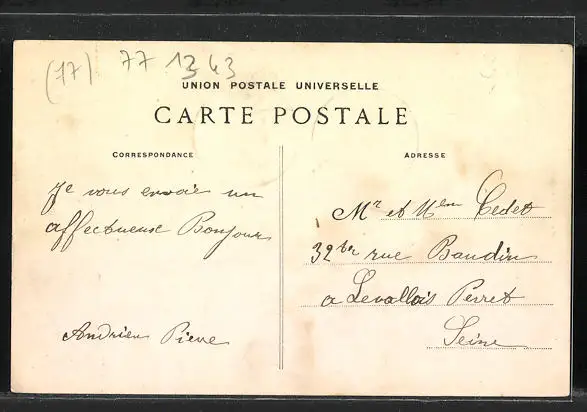 (17) 77 1343
UNION POSTALE UNIVERSELLE
CARTE POSTALE
CORRESPONDANCE
Je vous envoie un
affectueuse Bonjour
Andrieu Pieve
ADRESSE
Mr et Mem Cedet
32ter rue Baudin
a Levallois Perret
Seine